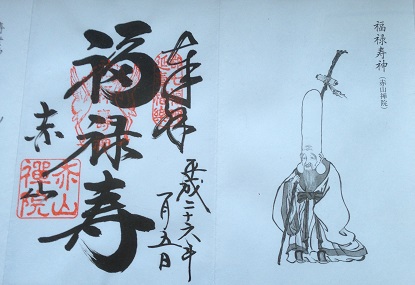 福禄寿神
(赤山禅院)
奉拝
平成二十六年
一月五日
福禄寿
赤山
赤山
禅院